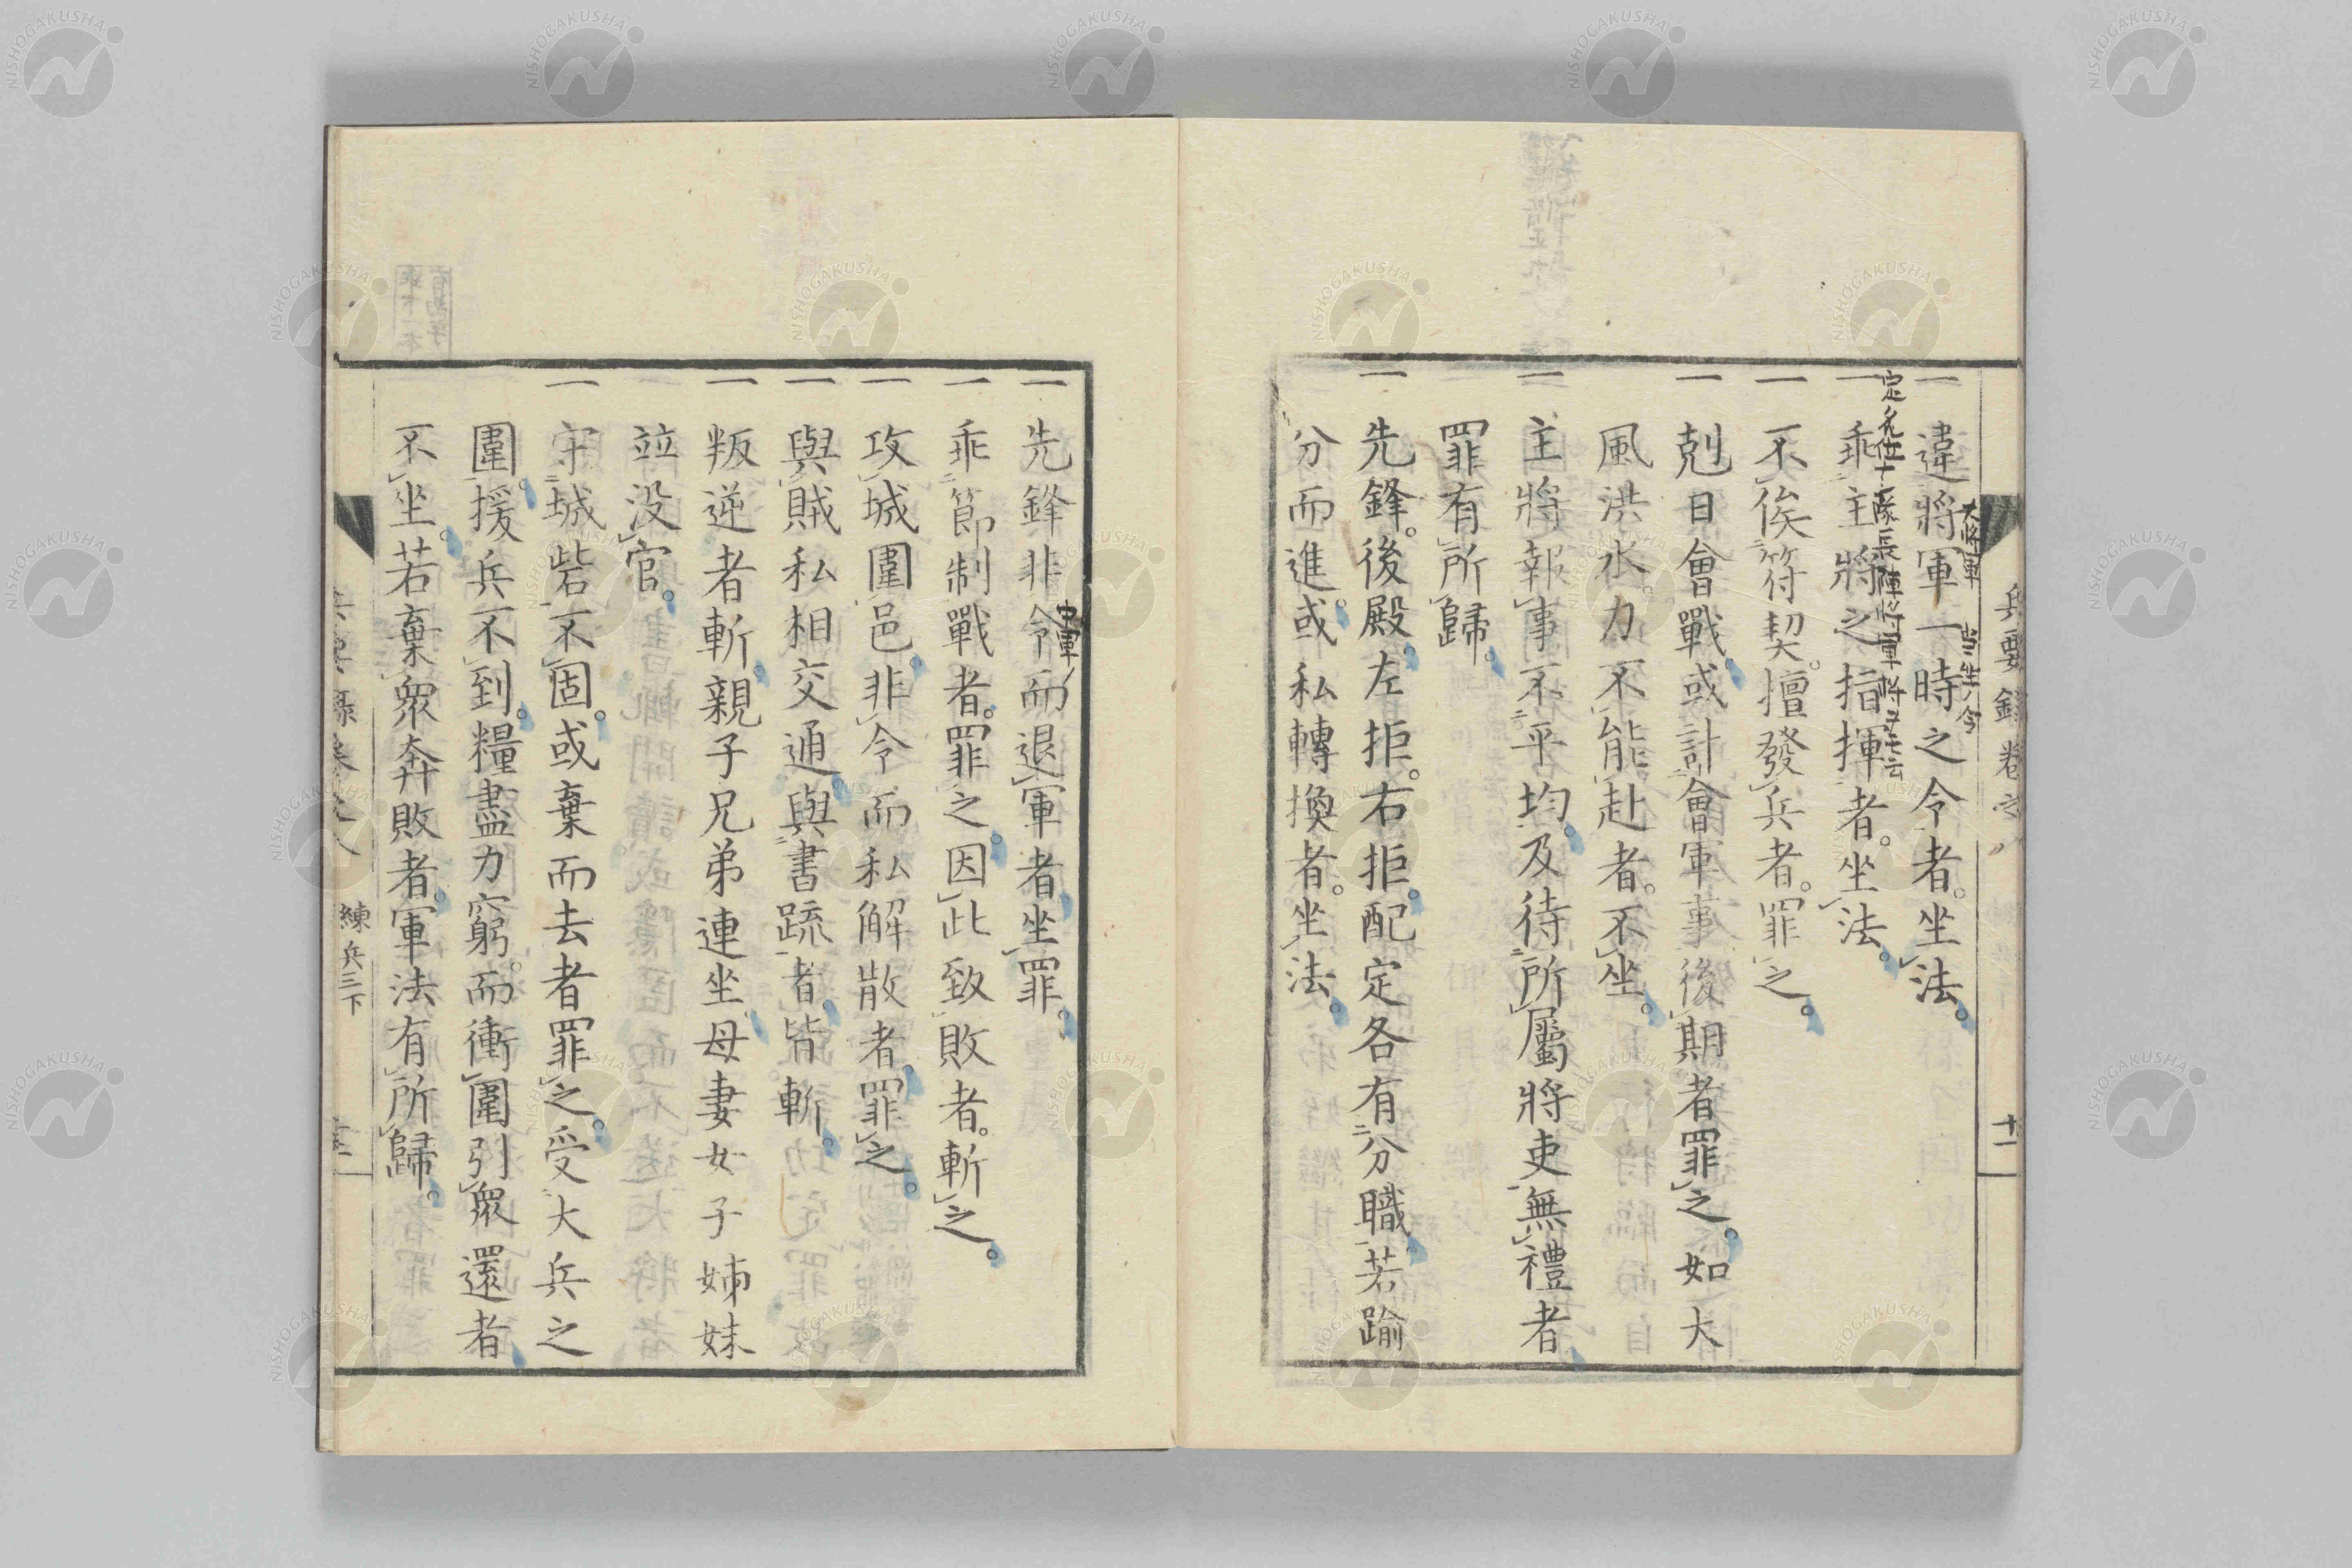 兵要録卷之八
十一
一違將軍一時之令者。坐法。
大將軍 当坐ノ令
一乖主將之指揮者。坐法。
一不俟符契。擅發兵者。罪之。
一剋日會戰。或計會軍事後期者罪之。如大
風洪水。力不能赴者。不坐。
一主將報事不平均。及待所屬將吏無禮者
罪有所歸。
一先鋒。後殿。左拒。右拒。配定各有分職。若踰
分而進。或私轉換者。坐法。
一先鋒非令而退軍者。坐罪。
中軍ノ
一乖節制戰者。罪之。因此致敗者。斬之。
一攻城圍邑。非令而私解散者。罪之。
一與賊私相交通。與書疏者。皆斬。
一叛逆者斬。親子兄弟連坐。母妻女子姊妹
竝没官。
一守城砦不固。或棄而去者罪之。受大兵之
圍。援兵不到。糧盡力窮。而衝圍引衆還者
不坐。若棄衆奔敗者。軍法有所歸。
練兵三下
NISHOGAKUSHA